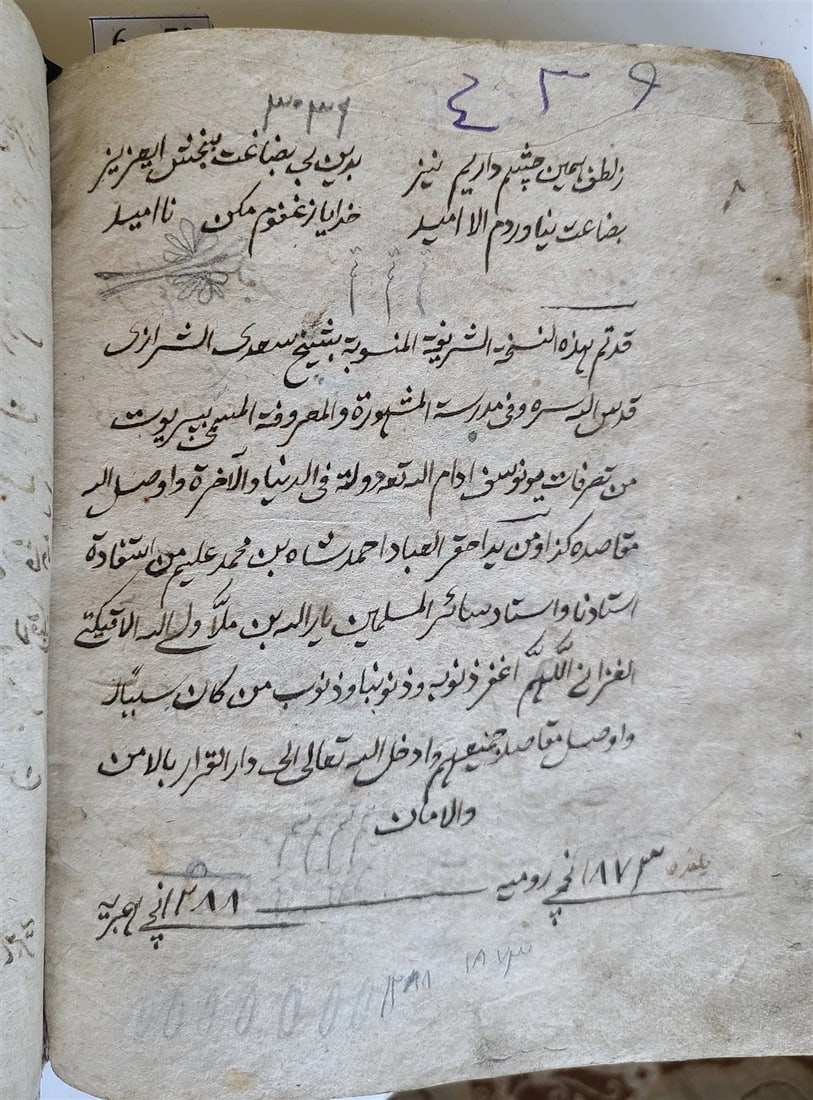 ٤٣٩
٣٠٣٩
زلطف همین چشم داریم نیز بدین بی بضاعت ببخش ایعزیز
بضاعت نیاوردم الا امید خدایا ز عفوم مکن نا امید
قد تم بهذه النسخة الشریفة المنسوبة بشیخ سعدی الشرازی
قدس الله سره وفی مدرسة المشهورة والمعروفة المسمی
من تصرفات ادام الله تعه دولة فی الدنیا والآخرة واوصل الله
مقاصده کذا ومن ید احقر العباد احمد شاه بن محمد علیم من استفادة
استادنا واستاد سائر المسلمین یار الله بن ملا ولی الله
اللهم اغفر ذنوبه وذنوبنا وذنوب من کان سبباً
واوصل مقاصد جمیعهم وادخل الله تعالی الی دار القرار بالامن
والامان
١٨٧٣ انچی رومیه ١٢٨٨ انچی هجریه
١٨٧٣ ١٢٨٨